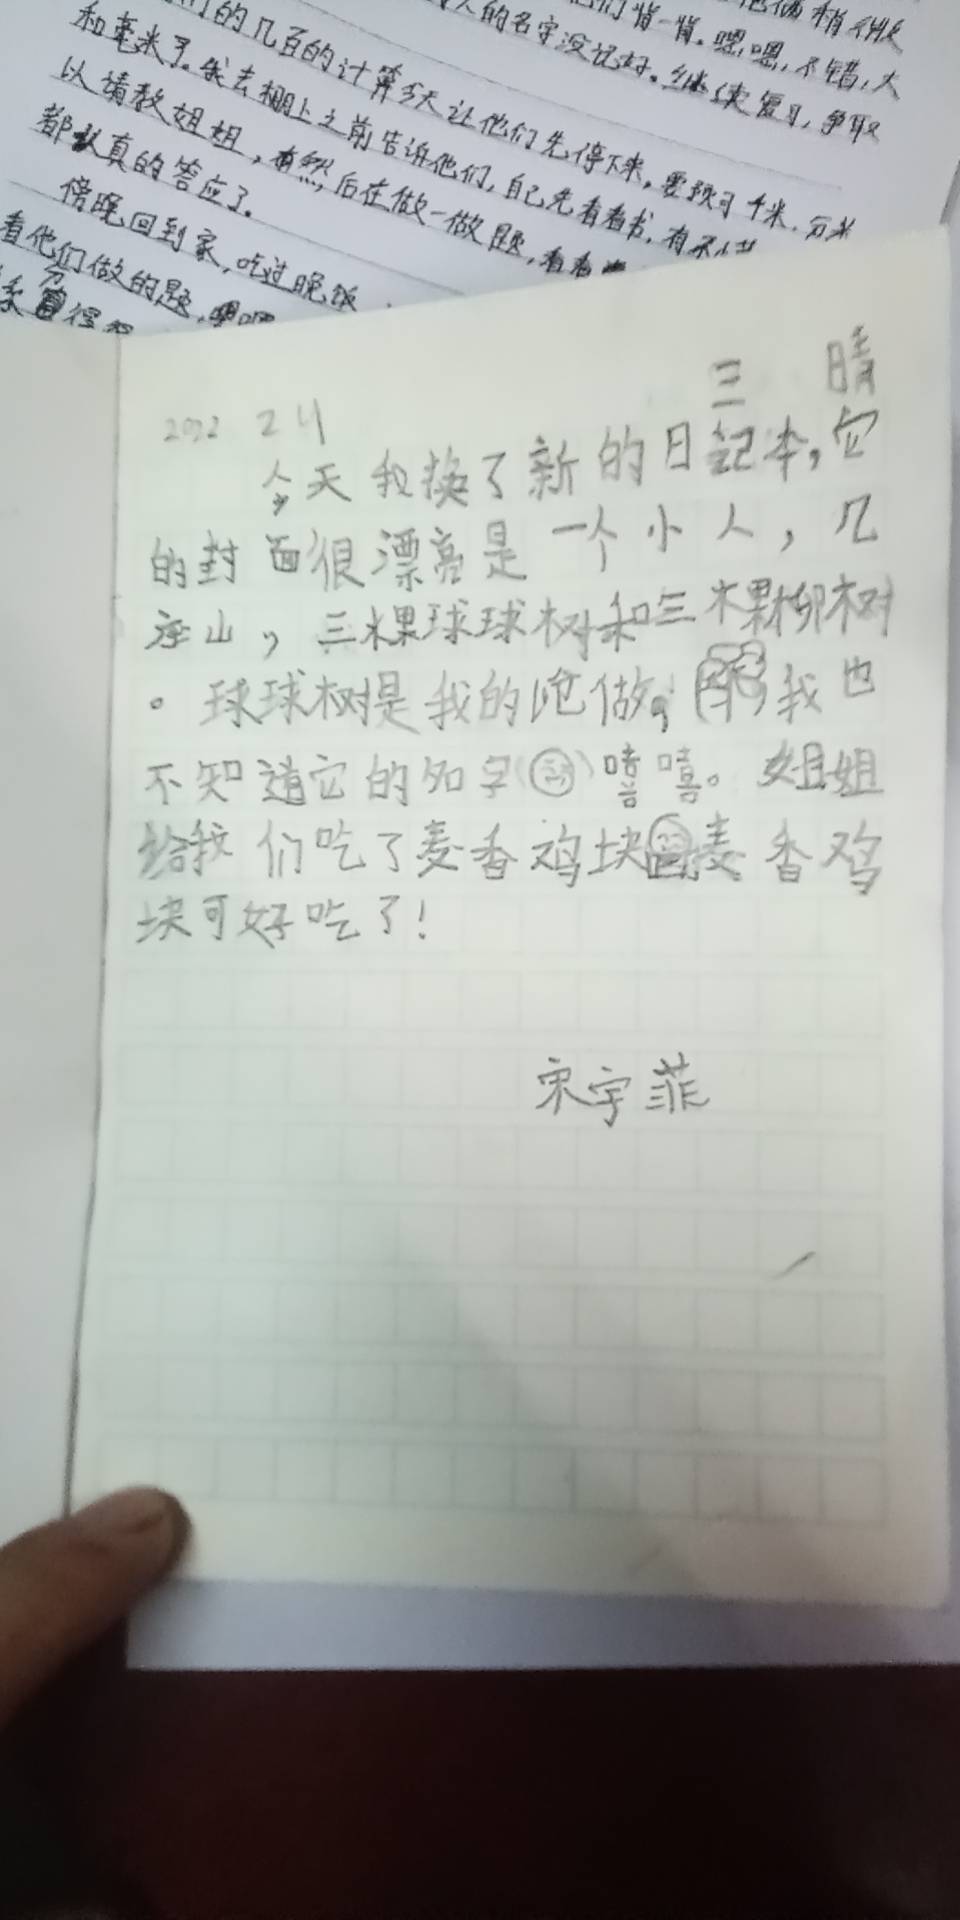 他俩稍微
他们背一背。嗯,嗯,不错,大
人的名字没记好。继续复习,争取
们的几百的计算今天让他们先停下来,要预习千米、分米
和毫米了。我去棚上之前告诉他们,自己先看看书,有不
以请教姐姐,然后在做一做题,看看
都认真的答应了。
傍晚回到家,吃过晚饭
看他们做的题,嗯嗯
2022 24 三 晴
今天我换了新的日记本,它
的封面很漂亮是一个小人,几
座山,三棵球球树和三棵柳树
。球球树是我的 做, 我也
不知道它的名字( )嘻嘻。姐姐
给我们吃了麦香鸡块 麦香鸡
块可好吃了!
宋宇菲